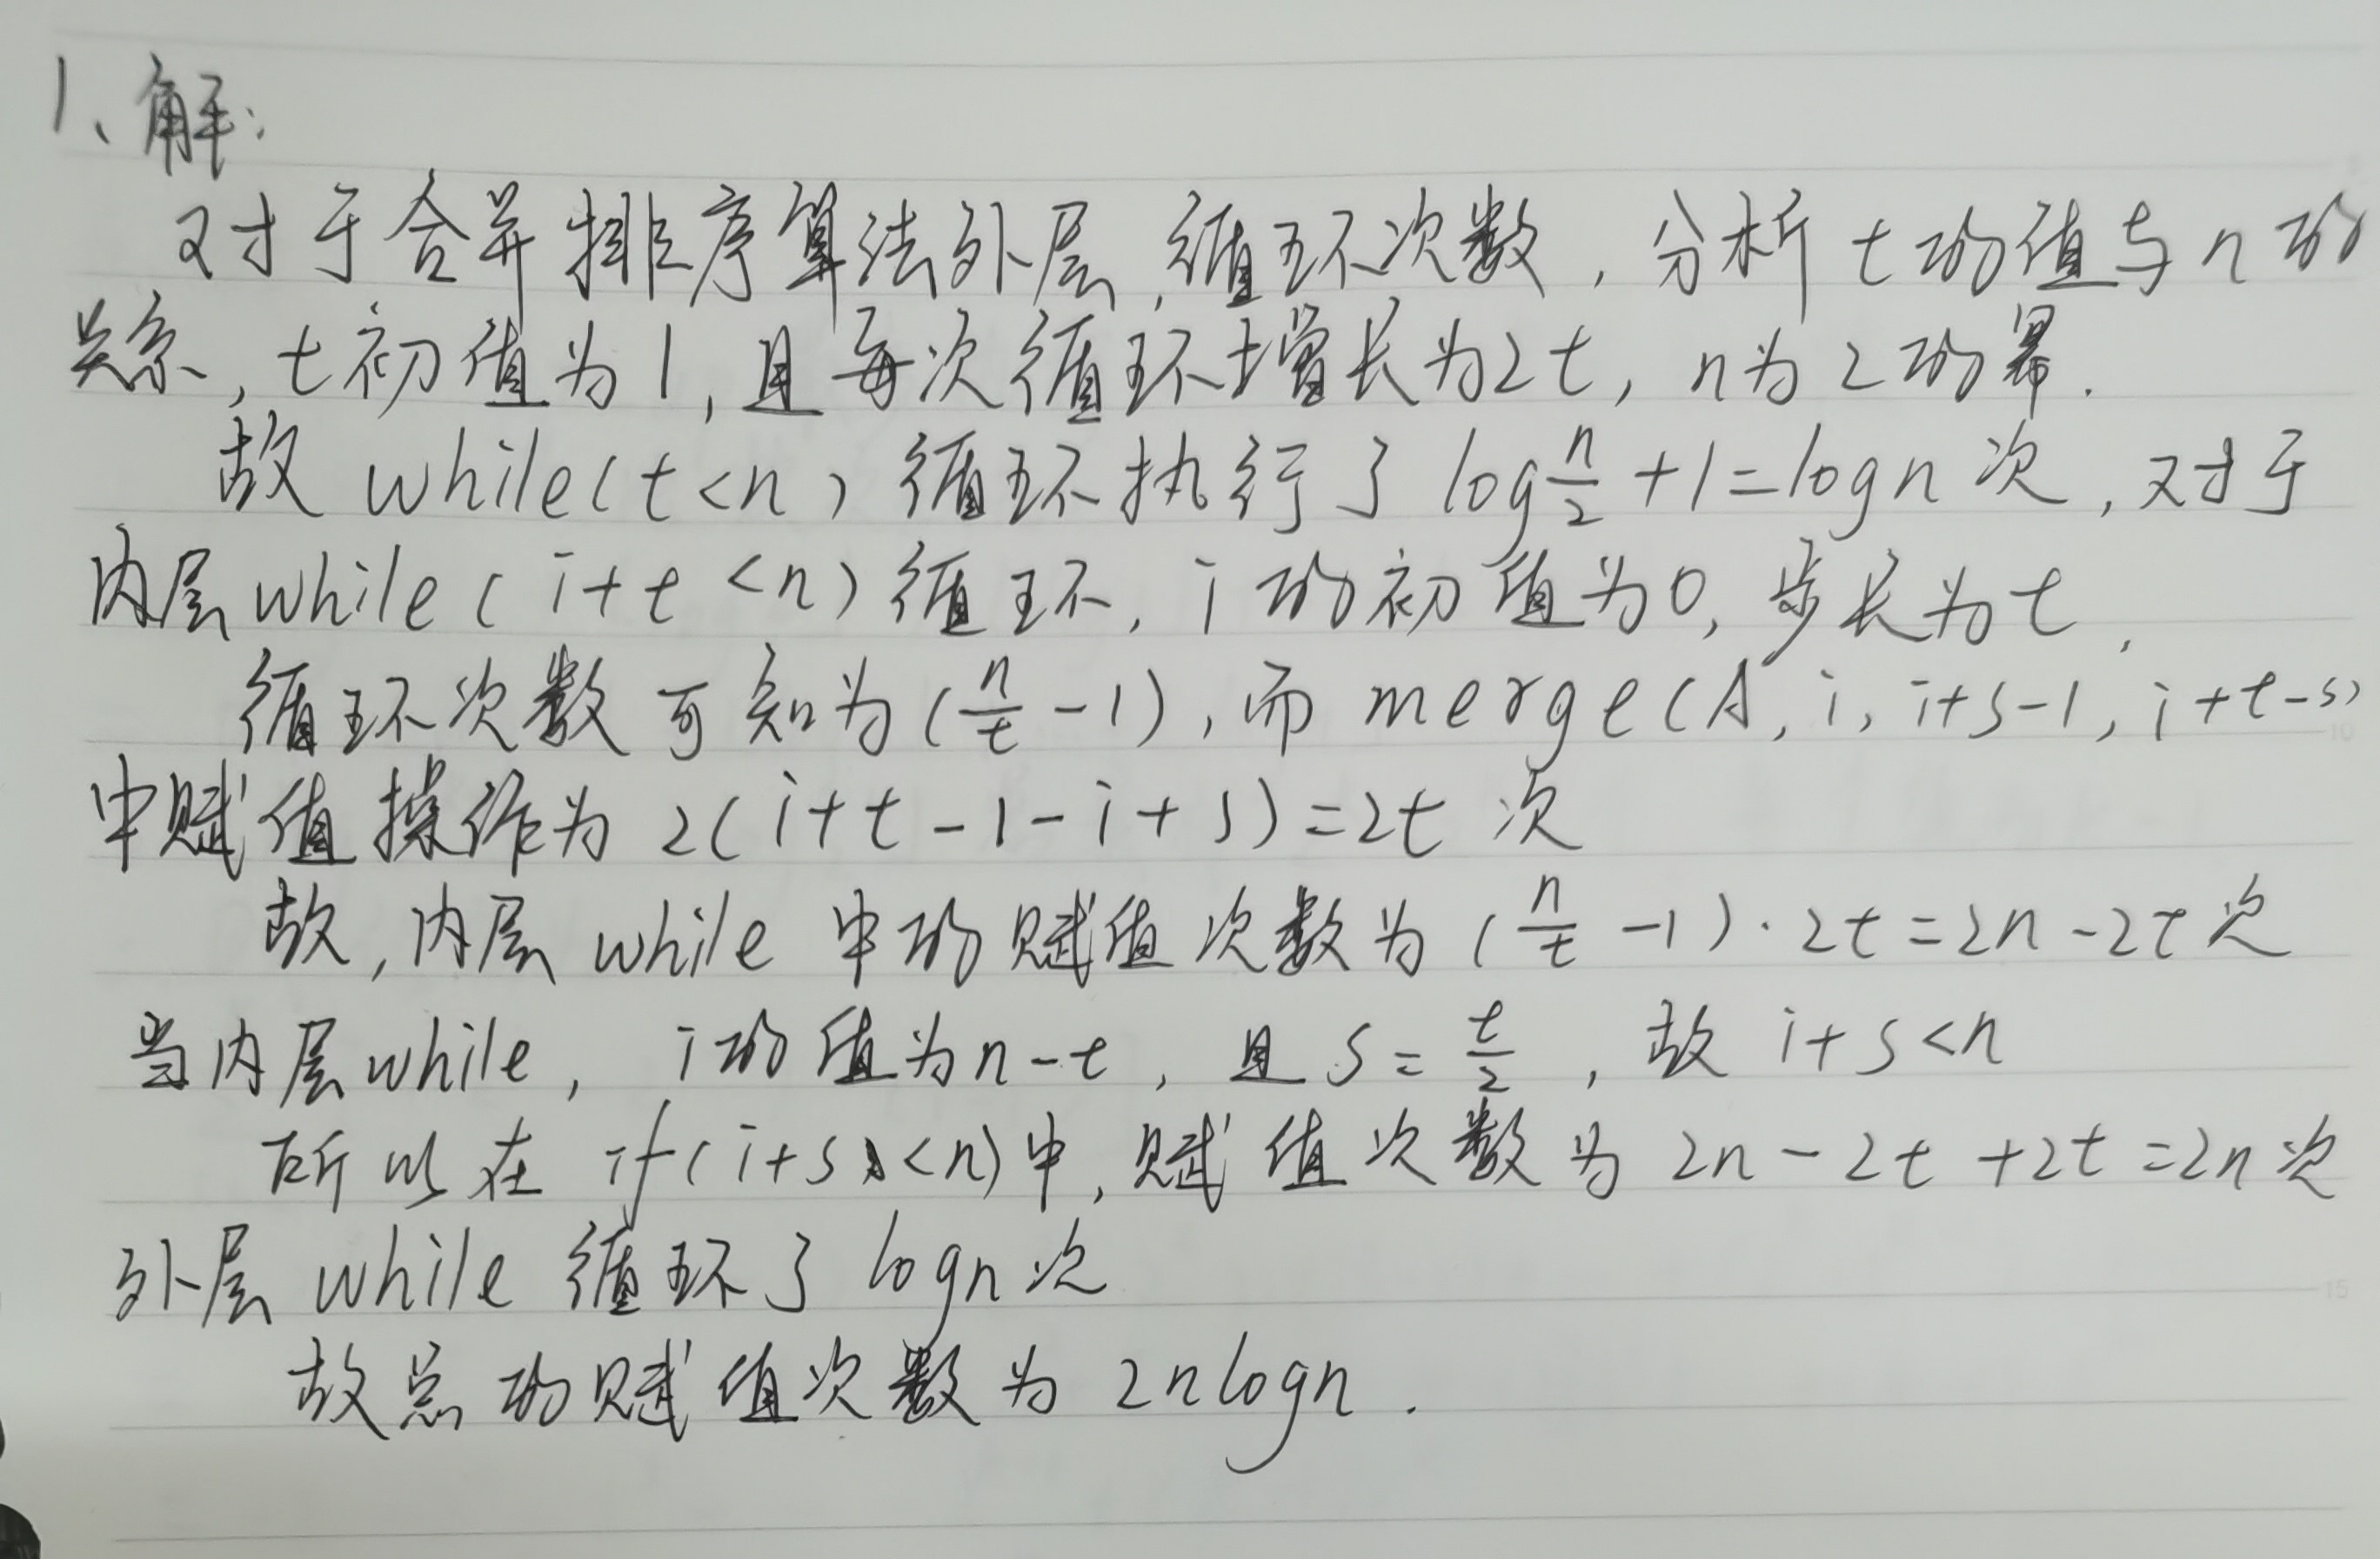 1、解:
对于合并排序算法外层,循环次数,分析t的值与n的
关系,t初值为1,且每次循环增长为2t,n为2的幂.
故while(t<n)循环执行了log n/2+1=logn次,对于
内层while(i+t<n)循环,i的初值为0,步长为t,
循环次数可知为(n/t-1),而merge(A,i,i+s-1,i+t-s)
中赋值操作为2(i+t-1-i+1)=2t次
故,内层while中的赋值次数为(n/t-1)·2t=2n-2t次
当内层while,i的值为n-t,且s=t/2,故i+s<n
所以在if(i+s<n)中,赋值次数为2n-2t+2t=2n次
外层while循环了logn次
故总的赋值次数为2nlogn.
10
15